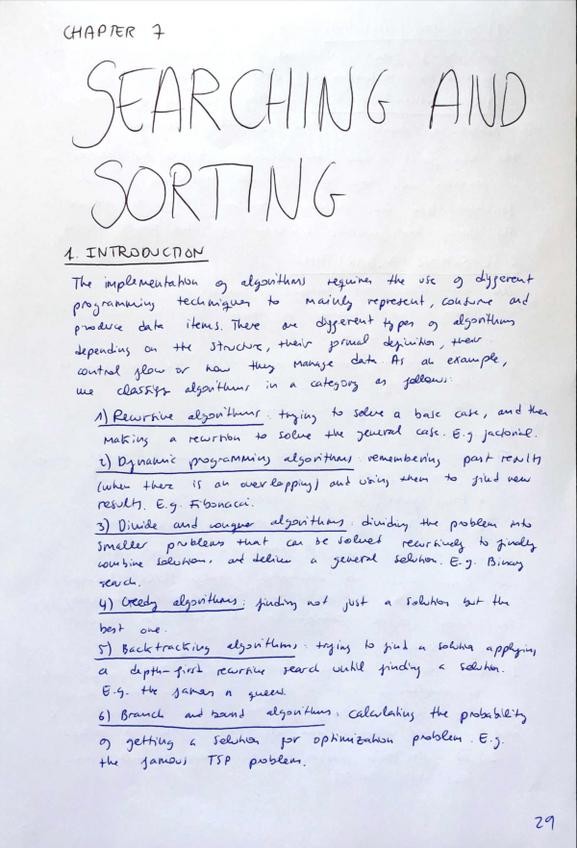 CHAPTER 7
SEARCHING AND
SORTING
1. INTRODUCTION
The implementation of algorithms requires the use of different
programming techniques to mainly represent, consume and
produce data items. There are different types of algorithms
depending on the structure, their formal definition, their
control flow or how they manage data. As an example,
we classify algorithms in a category as follows:
1) Recursive algorithms: trying to solve a base case, and then
making a recursion to solve the general case. E.g factorial.
2) Dynamic programming algorithms: remembering past results
(when there is an overlapping) and using them to find new
results. E.g. Fibonacci.
3) Divide and conquer algorithms: dividing the problem into
smaller problems that can be solved recursively to finally
combine solutions and deliver a general solution. E.g. Binary
search.
4) Greedy algorithms: finding not just a solution but the
best one.
5) Backtracking algorithms: trying to find a solution applying
a depth-first recursive search until finding a solution.
E.g. the famous n queens.
6) Branch and bound algorithms: calculating the probability
of getting a solution for optimization problem. E.g.
the famous TSP problem.
29